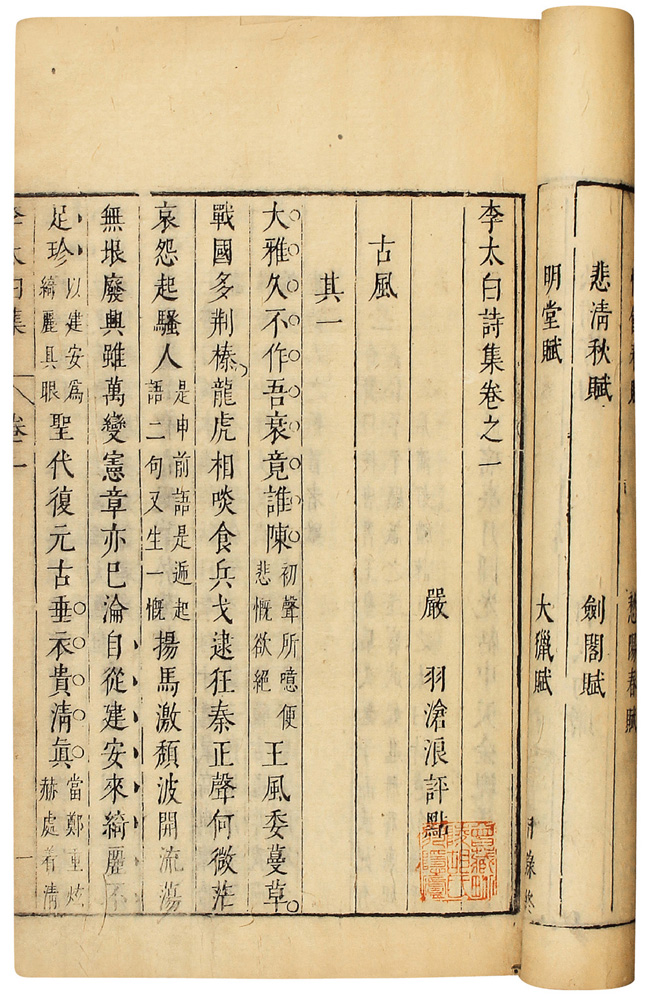 愁陽春賦
悲清秋賦 劍閣賦
明堂賦 大獵賦
目錄終
李太白詩集卷之一
嚴 羽滄浪評點
古風
其一
大雅久不作吾衰竟誰陳初聲所噫便悲慨欲絕王風委蔓草
戰國多荆榛龍虎相啖食兵戈逮狂秦正聲何微茫
哀怨起騷人是申前語是遞起語二句又生一慨揚馬激頹波開流蕩
無垠廢興雖萬變憲章亦已淪自從建安來綺麗不
足珍以建安爲綺麗具眼聖代復元古垂衣貴清眞當鄭重炫赫處着清
李太白集 卷一 一